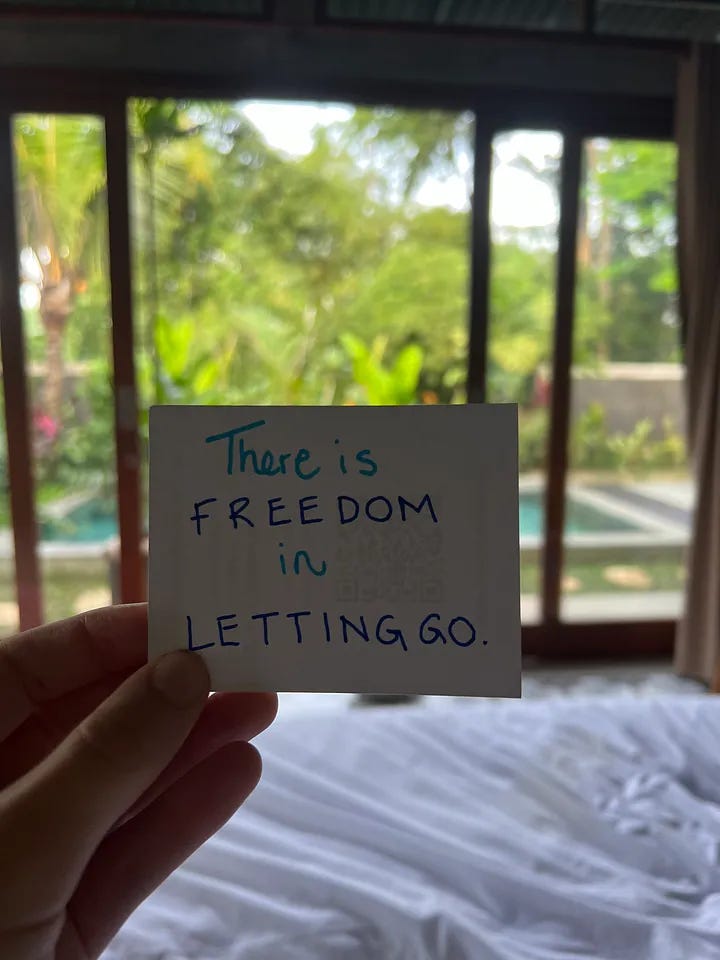 There is
FREEDOM
in
LETTING GO.